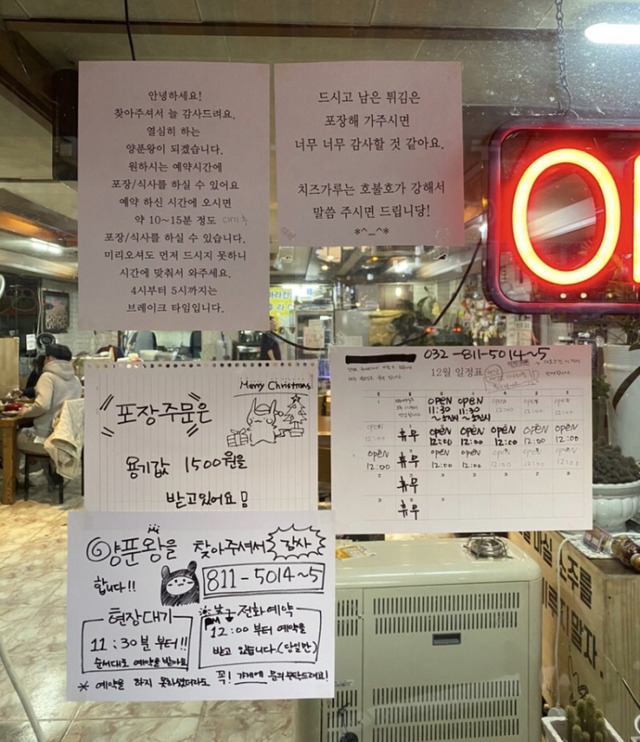 안녕하세요!
찾아주셔서 늘 감사드려요.
열심히 하는
양푼왕이 되겠습니다.
원하시는 예약시간에
포장/식사를 하실 수 있어요
예약 하신 시간에 오시면
약 10~15분 정도 대기후
포장/식사를 하실 수 있습니다.
미리오셔도 먼저 드시지 못하니
시간에 맞춰서 와주세요.
4시부터 5시까지는
브레이크 타임입니다.
드시고 남은 튀김은
포장해 가주시면
너무 너무 감사할 것 같아요.
치즈가루는 호불호가 강해서
말씀 주시면 드립니당!
*^_^*
Merry Christmas
포장주문은
용기값 1500원을
받고있어요
032-811-5014~5
12월 일정표
OPEN OPEN OPEN OPEN OPEN
11:30 11:30 12:00 12:00 12:00
OPEN 휴무 OPEN OPEN OPEN OPEN OPEN
12:00 12:00 12:00 12:00 12:00 12:00
OPEN 휴무 OPEN OPEN OPEN OPEN OPEN
12:00 12:00 12:00 12:00 12:00 12:00
휴무
휴무
양푼왕을 찾아주셔서 감사
합니다!!
811-5014~5
현장대기
11:30분 부터!!
순서대로 예약을 받아요
전화예약
12:00 부터 예약을
받고 있습니다.(당일만)
* 예약을 하지 못하셨더라도 꼭! 가게에 문의부탁드려요!